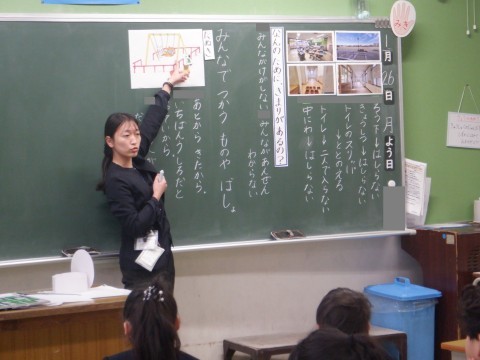 みぎ
1月26日 月よう日
ろう下→はしらない
きょうしつ→はしらない
トイレのスリッパ
→ととのえる
トイレ→二人で入らない
中にわ→はしらない
なんのために きまりがあるの?
みんながけがしない みんながあんぜん
わからない
みんなで つかう ものや ばしょ
あとから きたから、
いちばんうしろだと